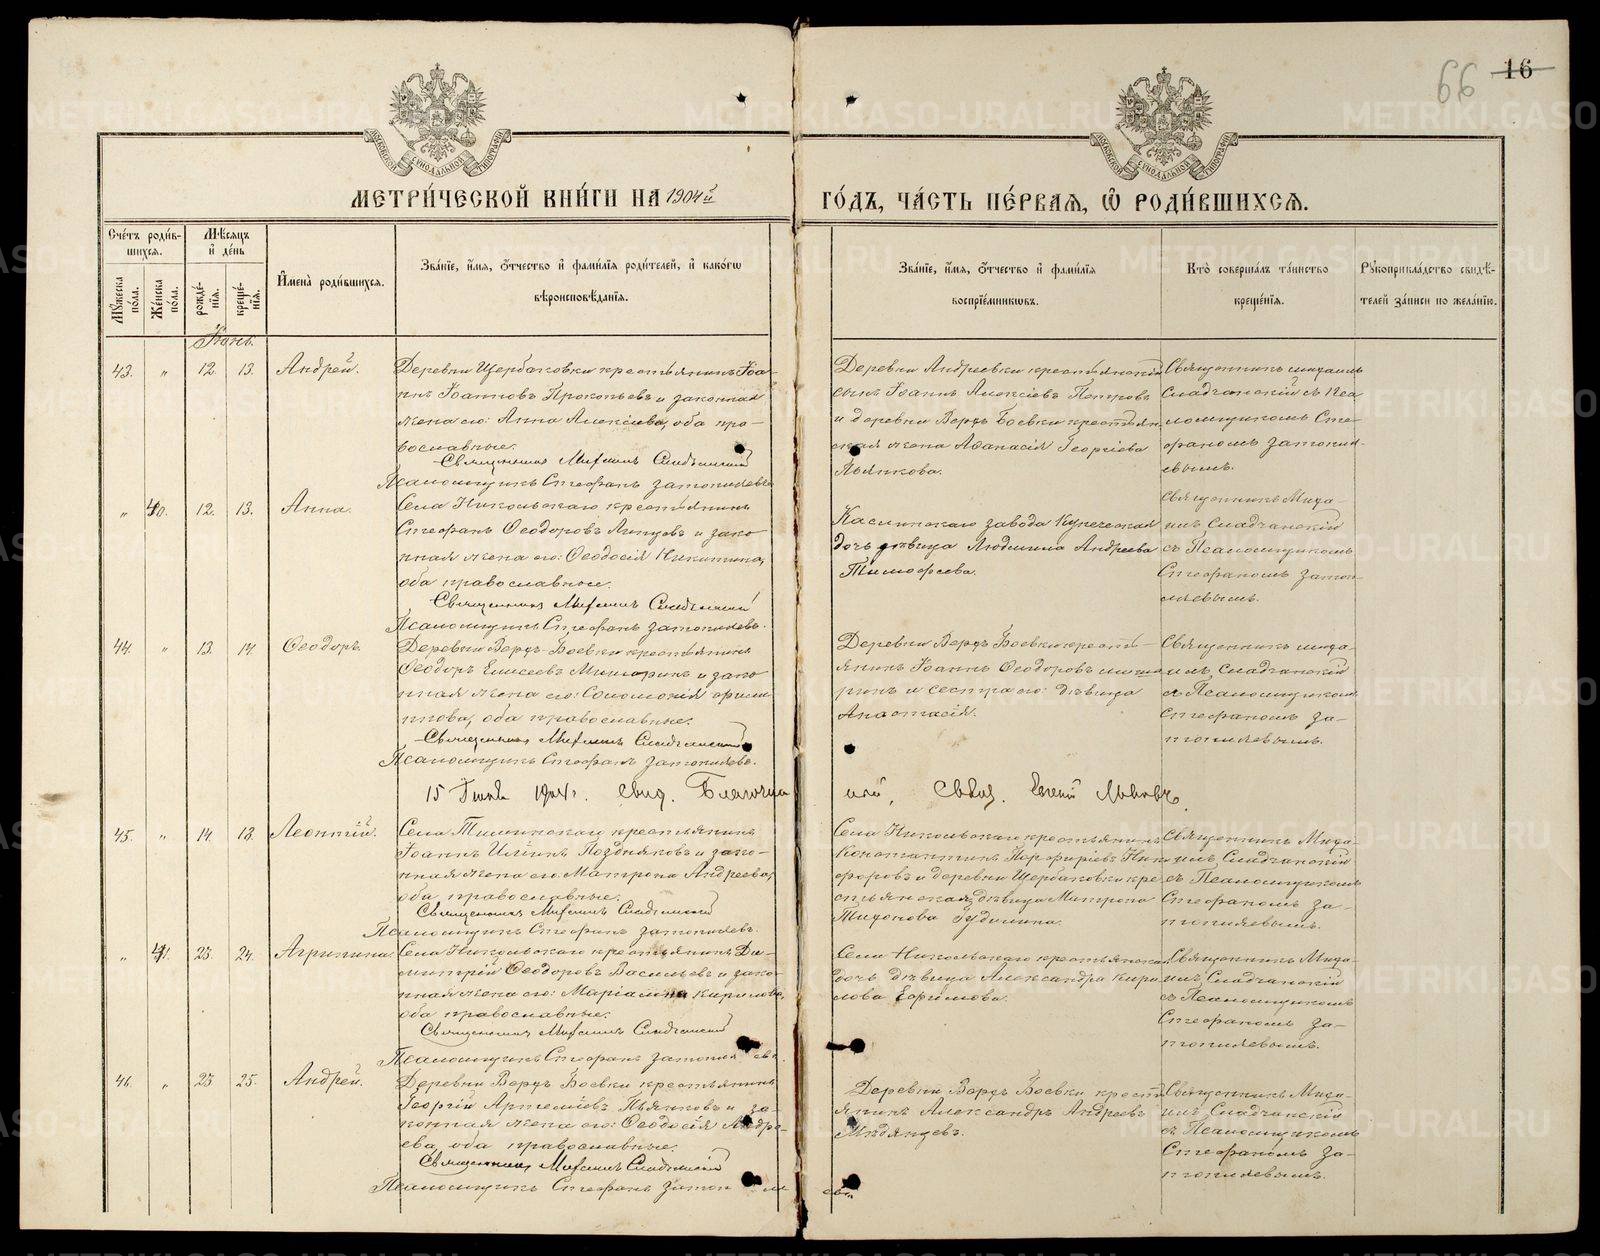 66 16
МОСКОВСКОЙ СУНОДАЛЬНОЙ ТИПОГРАФІИ
МОСКОВСКОЙ СУНОДАЛЬНОЙ ТИПОГРАФІИ
МЕТРИ́ЧЕСКОЙ КНИ́ГИ НА 1904й
ГО́ДЪ, ЧА́СТЬ ПЕ́РВАѦ, Ѡ РОДИ́ВШИХСѦ.
Сче́тъ роди́в-
шихсѧ.
Мꙋ́жеска по́ла.
Же́нска по́ла.
Мѣ́сѧцъ
и де́нь
рожде́-
нїѧ.
креще́-
нїѧ.
Имена̀ роди́вшихсѧ.
Зва́нїе, и́мѧ, ѻ́тчество и фами́лїѧ роди́телей, и како́гѡ
вѣроисповѣ́данїѧ.
Зва́нїе, и́мѧ, ѻ́тчество и фами́лїѧ
воспрїе́мникѡвъ.
Кто̀ соверша́лъ та́инство
креще́нїѧ.
Рꙋкоприкла́дство свидѣ́-
телей за́писи по жела́нїю.
Іюнь.
43. " 12. 13. Андрей.
Деревни Щербаковки крестьянинъ Іоа-
ннъ Іоанновъ Прокопьевъ и законная
жена его: Анна Алексіева, оба пра-
вославные.
Священникъ Михаилъ Сладчанскій
Псаломщикъ Стефанъ Затопляевъ
Деревни Андреевки крестьянскій
сынъ Іоаннъ Алексіевъ Петровъ
и деревни Верхъ Боевки крестьян-
ская жена Аѳанасія Георгіева
Пьянкова.
Священникъ михаилъ
Сладчанскій съ Пса
ломщикомъ Сте-
фаномъ Затопля-
евымъ.
" 40. 12. 13. Анна.
Села Никольскаго крестьянинъ
Стефанъ Ѳеодоровъ и зако
нная жена его: Ѳеодосія Никитина,
оба православные.
Священникъ Михаилъ Сладчанскій
Псаломщикъ Стефанъ Затопляевъ.
Каслинскаго завода Купеческая
дочь дѣвица Людмила Андреева
Тимофеева.
Священникъ Миха-
илъ Сладчанскій
съ Псаломщикомъ
Стефаномъ Затоп-
ляевымъ.
44. " 13. 14. Ѳеодоръ.
Деревни Верхъ-Боевки крестьянинъ
Ѳеодоръ Елисеевъ и зако
нная жена его: Соломонія Фили
ппова, оба православные.
Священникъ Михаилъ Сладчанскій
Псаломщикъ Стефанъ Затопляевъ.
Деревни Верхъ Боевки кресть-
янинъ Іоаннъ Ѳеодоровъ
и сестра его: дѣвица
Анастасія.
Священникъ миха-
илъ Сладчанскій
съ Псаломщикомъ
Стефаномъ За-
топляевымъ.
15 1904 г. Свид. Благочин
ный, Свящ. Евгеній Львовъ.
45. " 14. 18. Леонтій.
Села Тиминскаго крестьянинъ
Іоаннъ Ильинъ Поздняковъ и зако-
нная жена его Матрона Андреева,
оба православные.
Священникъ Михаилъ Сладчанскій
Псаломщикъ Стефанъ Затопляевъ.
Села Никольскаго крестьянинъ
Константинъ Порфиріевъ Ники
форовъ и деревни Щербаковки кре
стьянская дѣвица Матрона
Тихонова Гудилина.
Священникъ Миха
илъ Сладчанскій
съ Псаломщикомъ
Стефаномъ За-
топляевымъ.
" 41. 23. 24. Агрипина.
Села Никольскаго крестьянинъ Ди-
митрій Ѳеодоровъ Васильевъ и зако-
нная жена его: Маріамна Кирилова,
оба православные.
Священникъ Михаилъ Сладчанскій
Псаломщикъ Стефанъ Затопляевъ.
Села Никольскаго крестьянская
дочь дѣвица Александра Кири
лова Ефимова.
Священникъ Миха-
илъ Сладчанскій
съ Псаломщикомъ
Стефаномъ За-
топляевымъ.
46. " 23 25. Андрей.
Деревни Верхъ Боевки крестьянинъ
Георгій Артеміевъ Пьянковъ и за-
конная жена его: Ѳеодосія Андре-
ева, оба православные.
Священникъ Михаилъ Сладчанскій
Псаломщикъ Стефанъ Затопляевъ
Деревни Верхъ Боевки кресть
янинъ Александръ Андреевъ
Мѣдянцевъ.
Священникъ Миха-
илъ Сладчанскій
съ Псаломщикомъ
Стефаномъ За-
топляевымъ.
METRIKI.GASO-URAL.RU